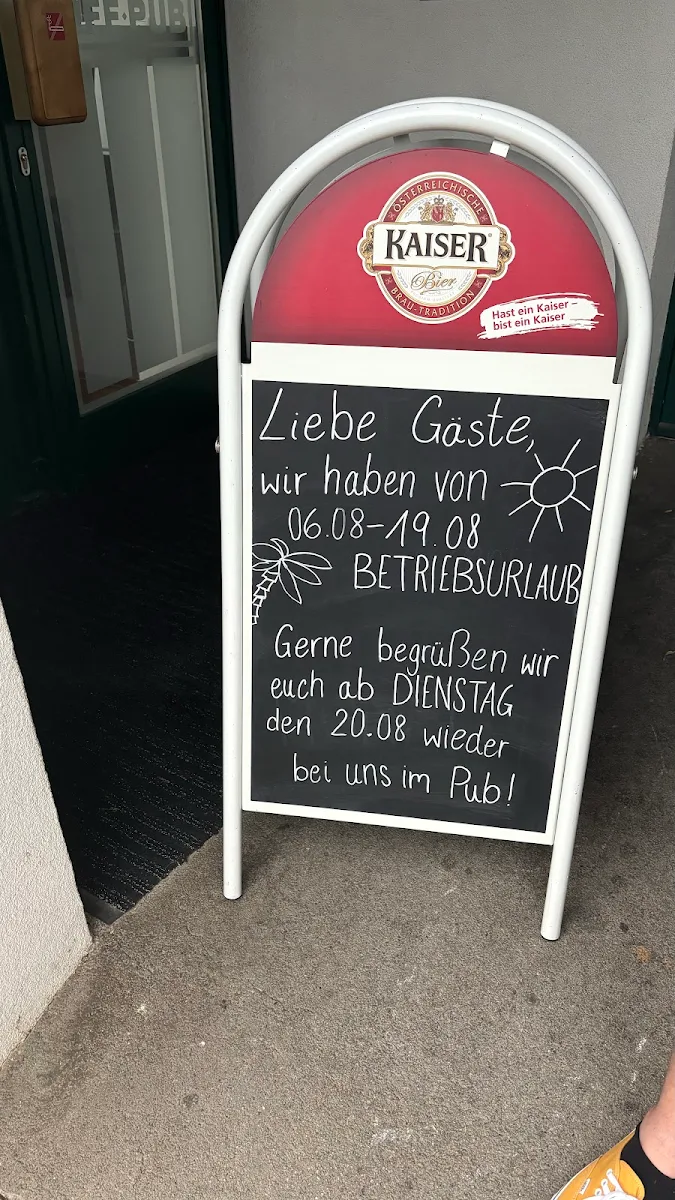 EE.PUB
ÖSTERREICHISCHE
KAISER
Bier
BRAU-TRADITION
Hast ein Kaiser –
bist ein Kaiser
Liebe Gäste,
wir haben von
06.08-19.08
BETRIEBSURLAUB
Gerne begrüßen wir
euch ab DIENSTAG
den 20.08 wieder
bei uns im Pub!